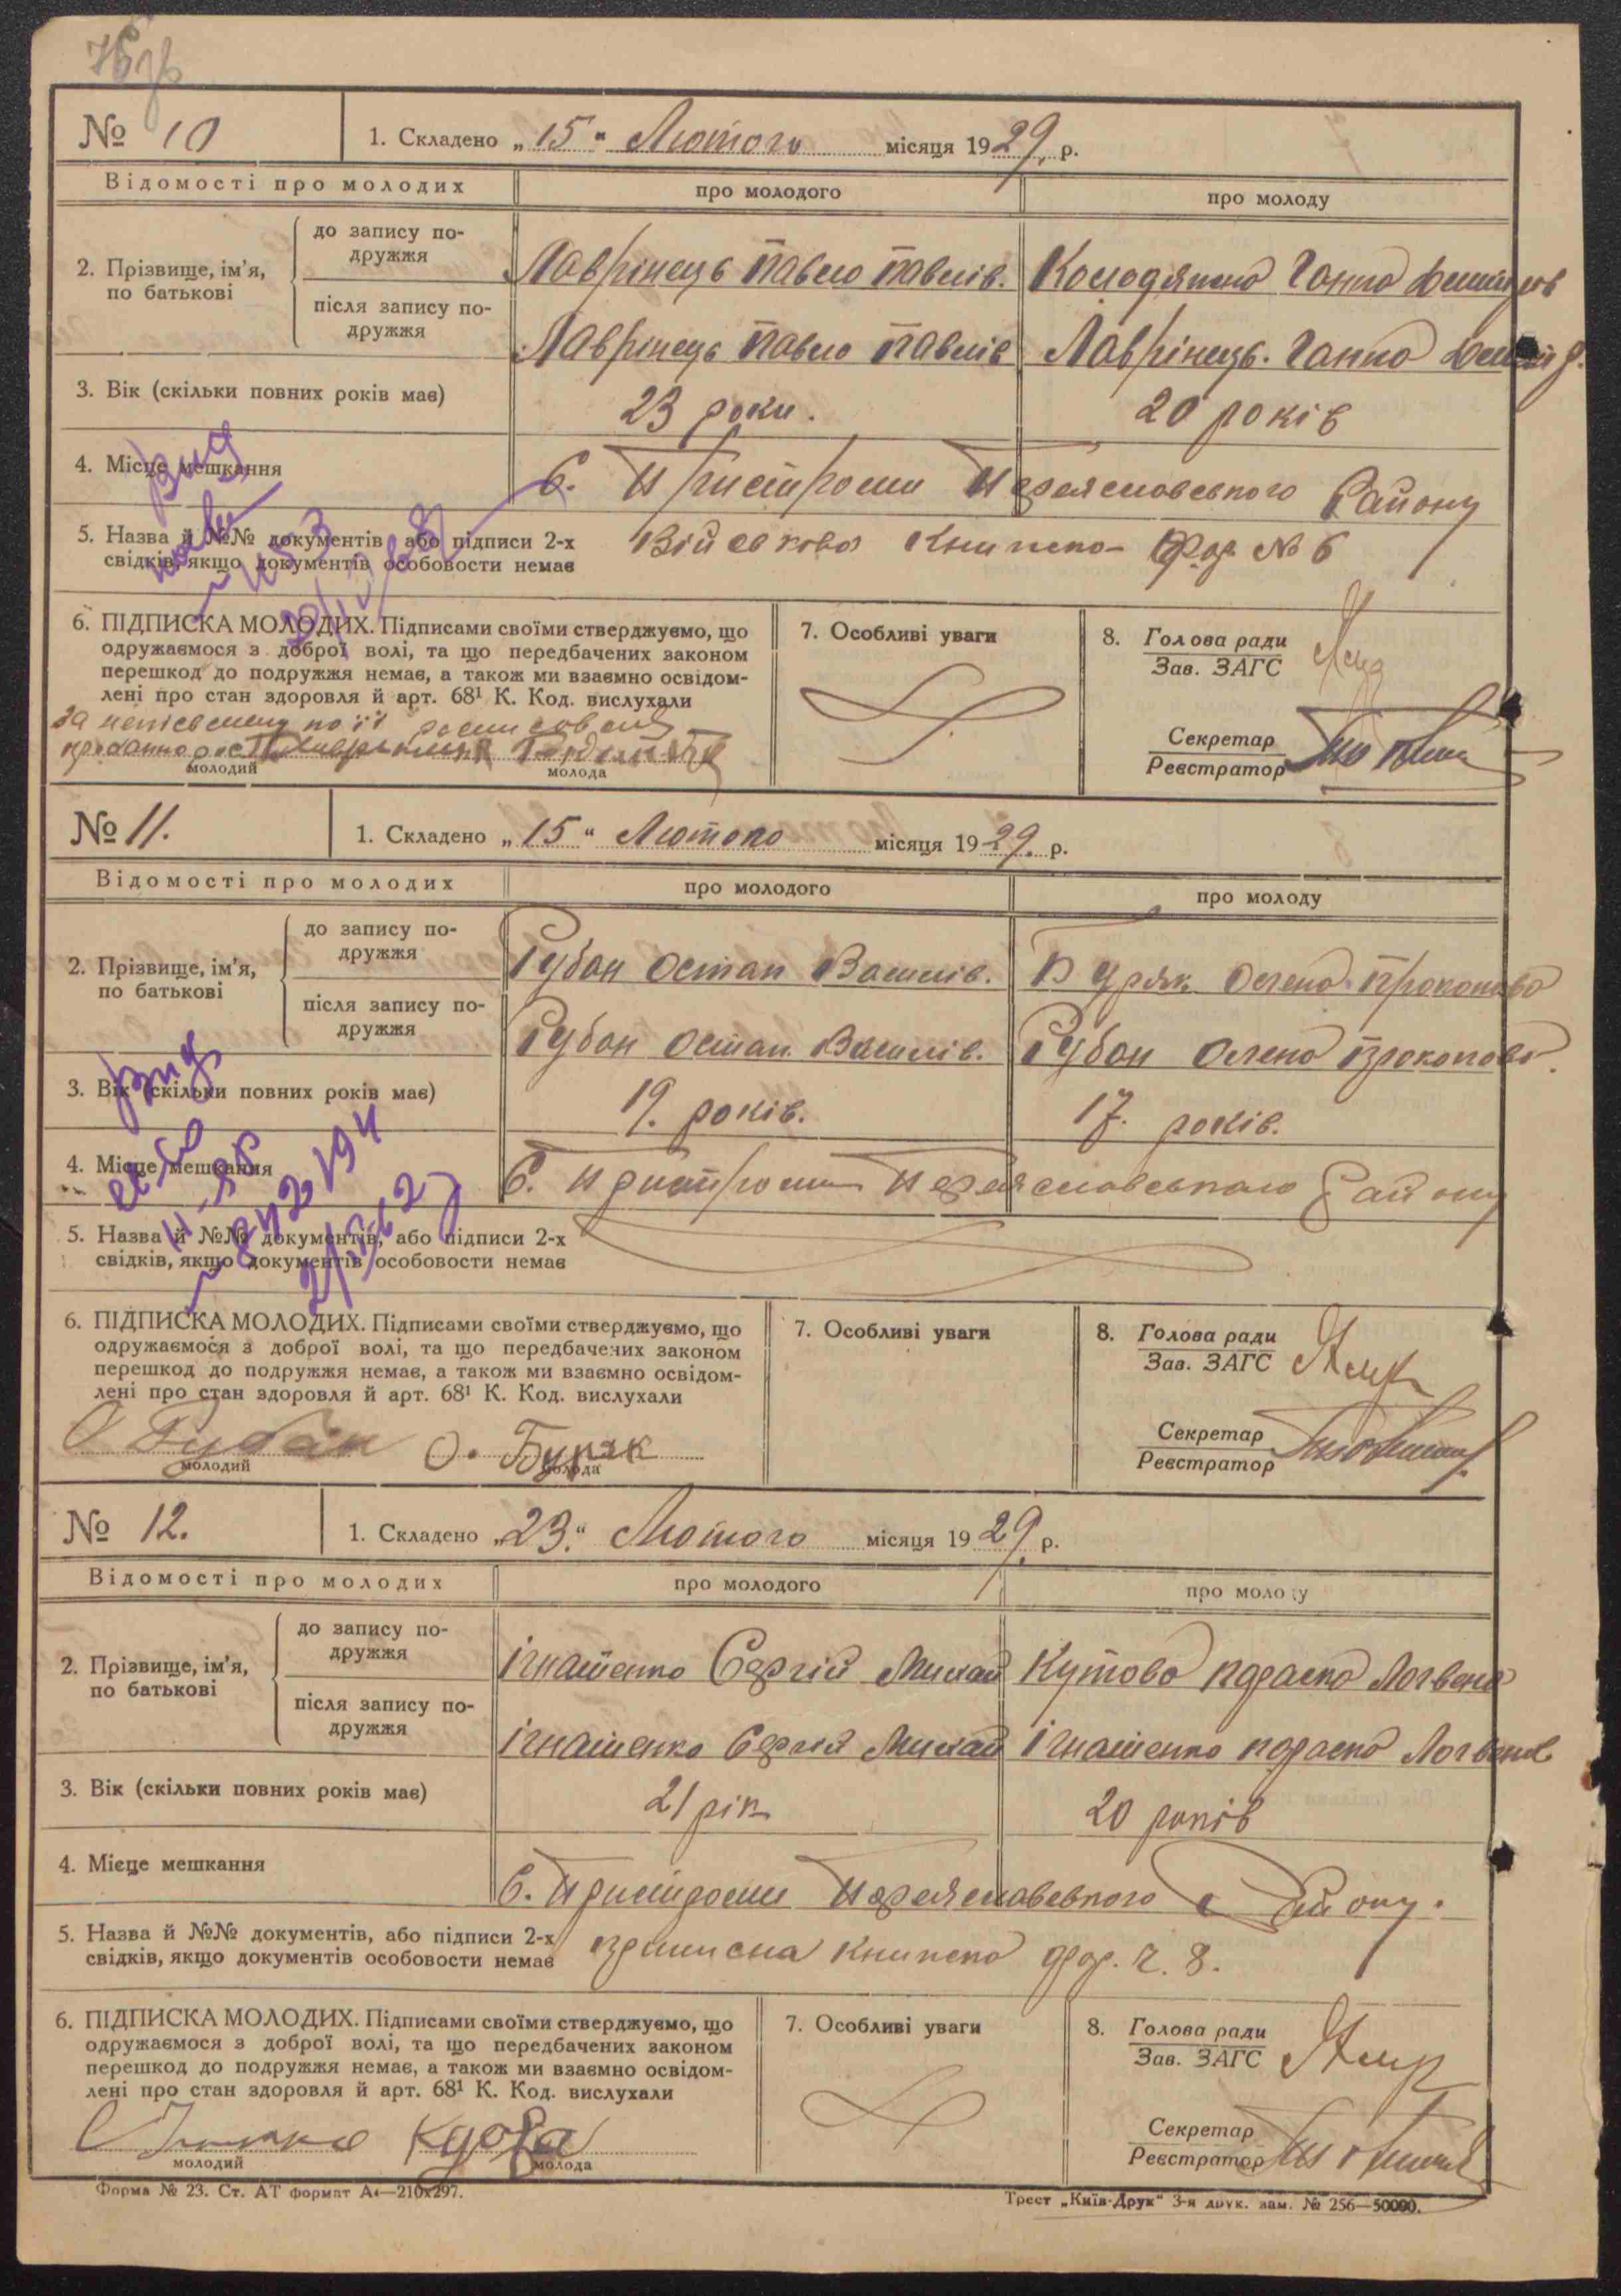 № 10
1. Складено „15“ Лютого місяця 1929. р.
Відомості про молодих
про молодого
про молоду
2. Прізвище, ім’я,
по батькові
до запису по-
дружжя
Лаврінець Павло Павлів.
Колодяжна Ганна
після запису по-
дружжя
Лаврінець Павло Павлів
Лаврінець. Ганна
3. Вік (скільки повних років має)
23 роки.
20 років
4. Місце мешкання
С. Пристроми Переяславського Району
5. Назва й №№ документів, або підписи 2-х
свідків, якщо документів особовости немає
Військова Книжка фор № 6
6. ПІДПИСКА МОЛОДИХ. Підписами своїми стверджуємо, що
одружаємося з доброї волі, та що передбачених законом
перешкод до подружжя немає, а також ми взаємно освідом-
лені про стан здоровля й арт. 68¹ К. Код. вислухали
молодий
молода
7. Особливі уваги
8. Голова ради
Зав. ЗАГС
Секретар
Реєстратор
№ 11.
1. Складено „15“ Лютого місяця 1929. р.
Відомості про молодих
про молодого
про молоду
2. Прізвище, ім’я,
по батькові
до запису по-
дружжя
Рубан Остап Васалів.
Буряк Олена Прокопова
після запису по-
дружжя
Рубан Остап Васалів.
Рубан Олена Прокопова.
3. Вік (скільки повних років має)
19. років.
17. років.
4. Місце мешкання
С. Пристроми Переяславського Району
5. Назва й №№ документів, або підписи 2-х
свідків, якщо документів особовости немає
6. ПІДПИСКА МОЛОДИХ. Підписами своїми стверджуємо, що
одружаємося з доброї волі, та що передбачених законом
перешкод до подружжя немає, а також ми взаємно освідом-
лені про стан здоровля й арт. 68¹ К. Код. вислухали
О Рубан
О. Буряк
молодий
молода
7. Особливі уваги
8. Голова ради
Зав. ЗАГС
Секретар
Реєстратор
№ 12.
1. Складено „23.“ Лютого місяця 1929. р.
Відомості про молодих
про молодого
про молоду
2. Прізвище, ім’я,
по батькові
до запису по-
дружжя
Ігнатенко Сергій Михай
Кутова Параска Логвена
після запису по-
дружжя
Ігнатенко Сергій Михай
Ігнатенко Параска Логвенов
3. Вік (скільки повних років має)
21 рік
20 років
4. Місце мешкання
С. Пристроми Переяславського Району.
5. Назва й №№ документів, або підписи 2-х
свідків, якщо документів особовости немає
Приписна Книжка фор. ч. 8.
6. ПІДПИСКА МОЛОДИХ. Підписами своїми стверджуємо, що
одружаємося з доброї волі, та що передбачених законом
перешкод до подружжя немає, а також ми взаємно освідом-
лені про стан здоровля й арт. 68¹ К. Код. вислухали
молодий
молода
7. Особливі уваги
8. Голова ради
Зав. ЗАГС
Секретар
Реєстратор
Форма № 23. Ст. АТ формат А4—210х297.
Трест „Київ-Друк“ 3-я друк. зам. № 256—50000.